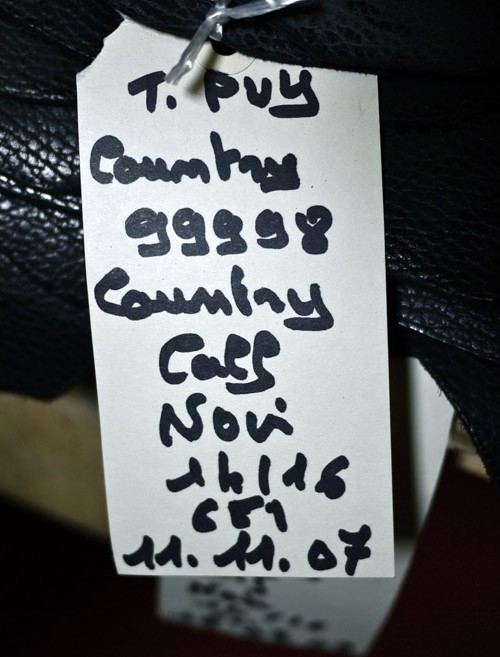 T. PUY
Country
99998
Country
Calf
Novi
14/16
CE1
11. 11. 07